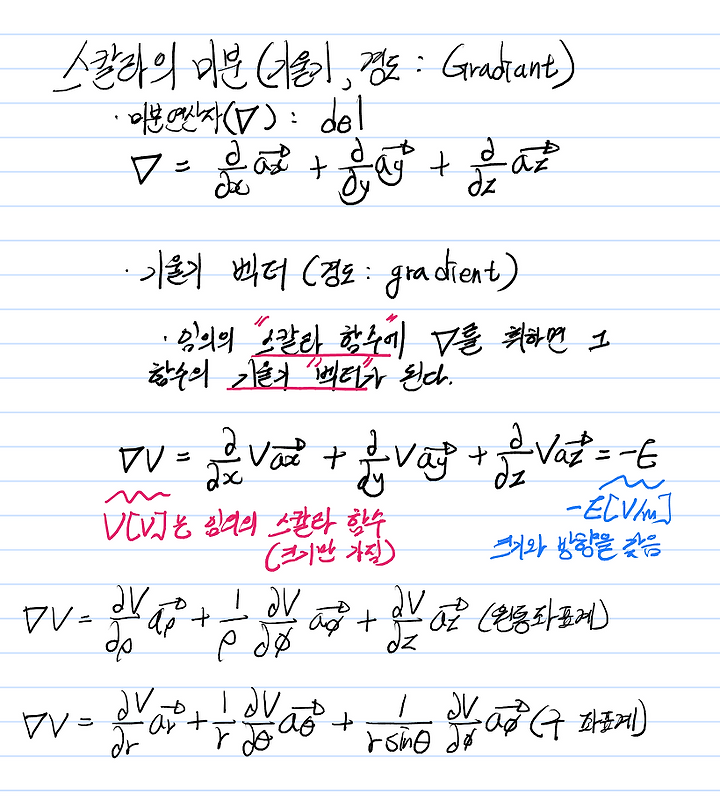 스칼라의 미분(기울기, 경도 : Gradiant)
· 미분연산자(∇) : del
∇ = ∂/∂x a⃗x + ∂/∂y a⃗y + ∂/∂z a⃗z
· 기울기 벡터 (경도 : gradient)
· 임의의 "스칼라 함수"에 ∇를 취하면 그
함수의 기울기 "벡터"가 된다.
∇V = ∂/∂x V a⃗x + ∂/∂y V a⃗y + ∂/∂z V a⃗z = -E
V[V]는 임의의 스칼라 함수
(크기만 가짐)
-E[V/m]
크기와 방향을 찾음
∇V = ∂V/∂ρ a⃗ρ + 1/ρ ∂V/∂φ a⃗φ + ∂V/∂z a⃗z (원통좌표계)
∇V = ∂V/∂r a⃗r + 1/r ∂V/∂θ a⃗θ + 1/(r sinθ) ∂V/∂φ a⃗φ (구 좌표계)